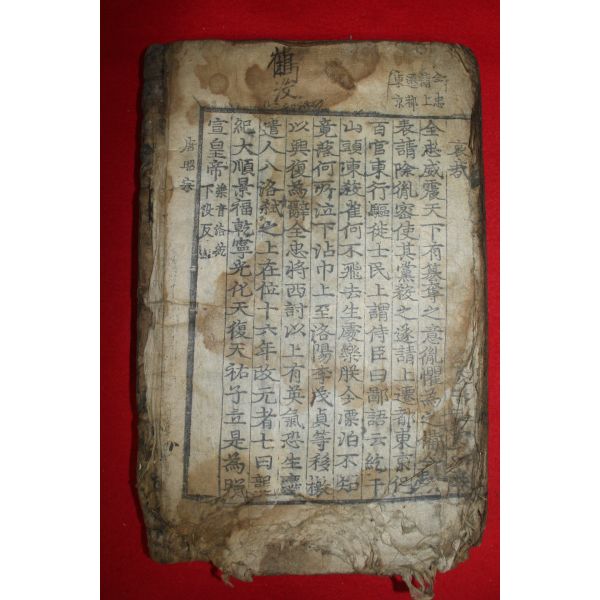 全忠
請上
遷都
東京
鶴
全忠威震天下有簒奪之意胤懼爲之備
表請除胤密使其黨殺之遂請上遷都東京促
百官東行驅徙士民上謂侍臣曰鄙語云紇干
山頭凍殺雀何不飛去生處樂朕今漂泊不知
竟落何所泣下沾巾上至洛陽李茂貞等移檄
以興復爲辭全忠將西討以上有英氣恐生變
遣人入洛弑之上在位十六年改元者七曰龍
紀大順景福乾寧光化天復天祐子立是爲昭
宣皇帝
樂音洛
下沒反
唐昭宗